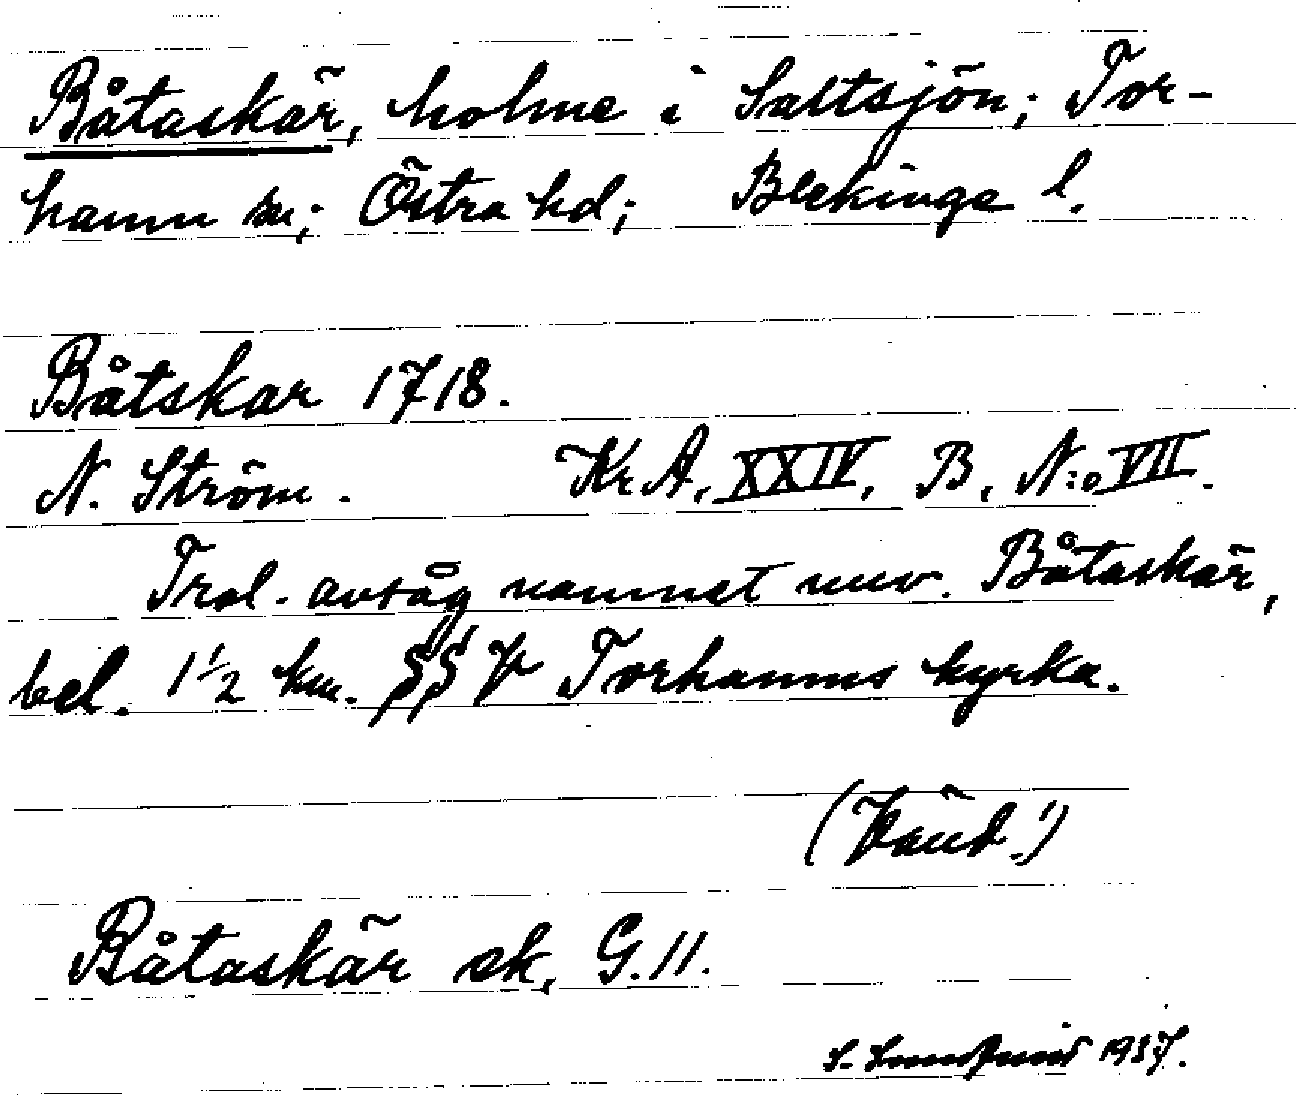 Båtaskär, holme i Saltsjön; Tor-
hamn sn; Östra hd; Blekinge l.
Båtskar 1718.
N. Ström. Kr A, XXIV, B, N:o VII.
Trol. avsåg namnet nuv. Båtaskär,
bel. 1 1/2 km. SSV Torhamns kyrka.
(Vänd!)
Båtaskär ek, G.11.
S. 1937.